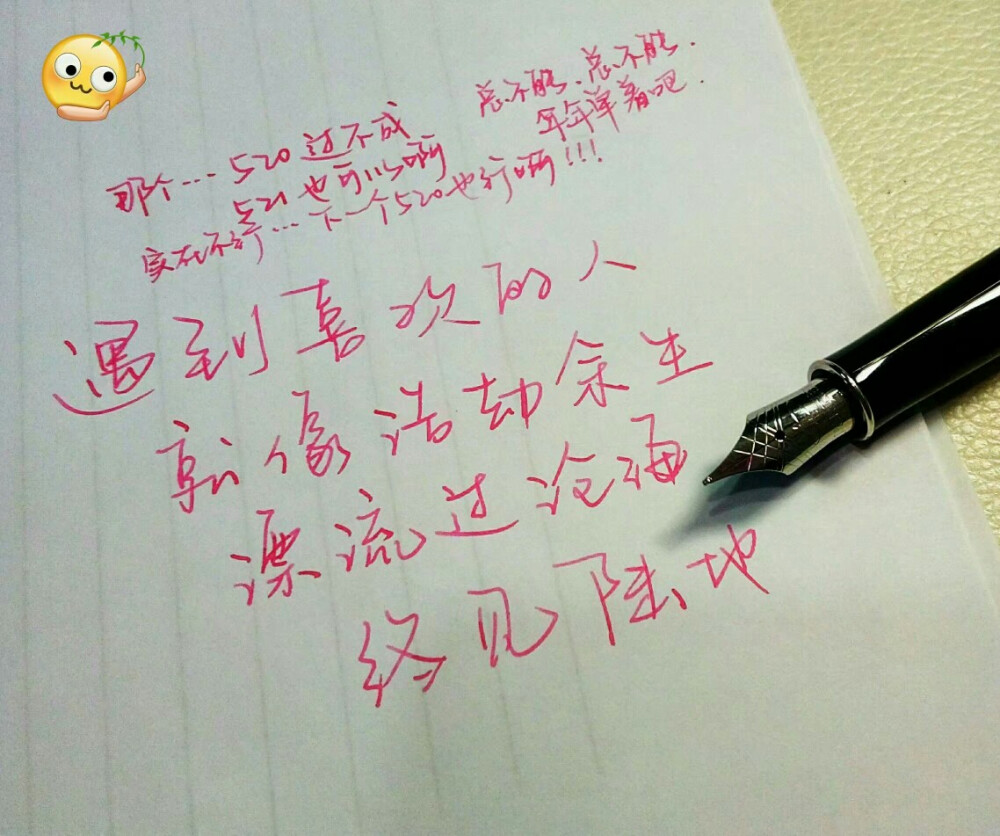 那个…520过不成
521也可以啊
实在不行…下一个520也行啊!!!
总不能、总不能、
年年单着吧.
遇到喜欢的人
就像浩劫余生
漂流过沧海
终见陆地